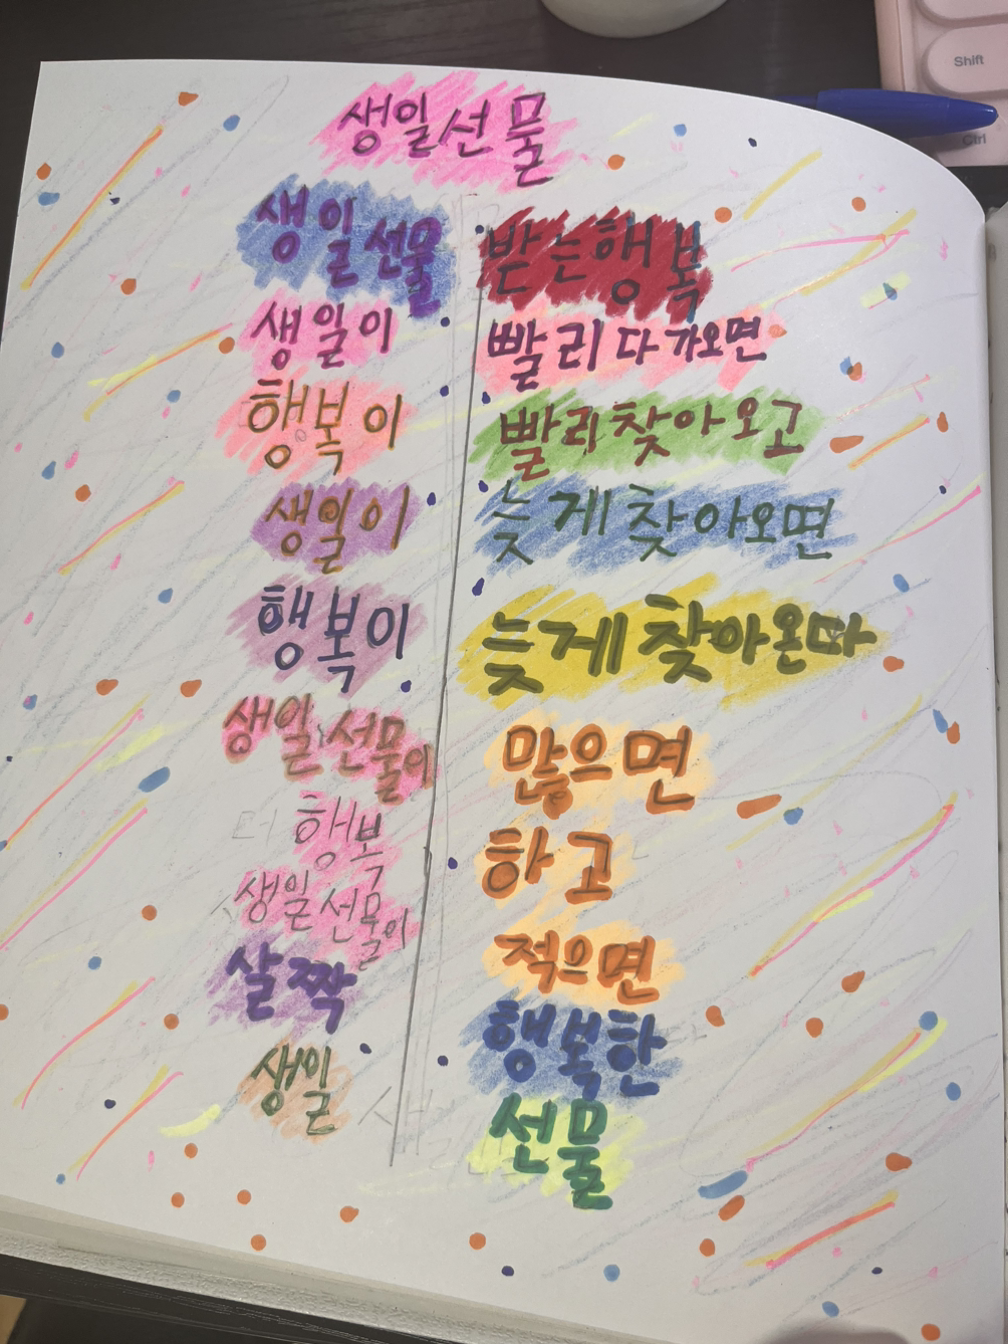 생일선물
생일선물 받는행복
생일이 빨리다가오면
행복이 빨리찾아오고
생일이 늦게찾아오면
행복이 늦게찾아온다
생일선물이 많으면
더 행복하고
생일선물이 적으면
살짝 행복한
생일 선물
Shift
Ctrl